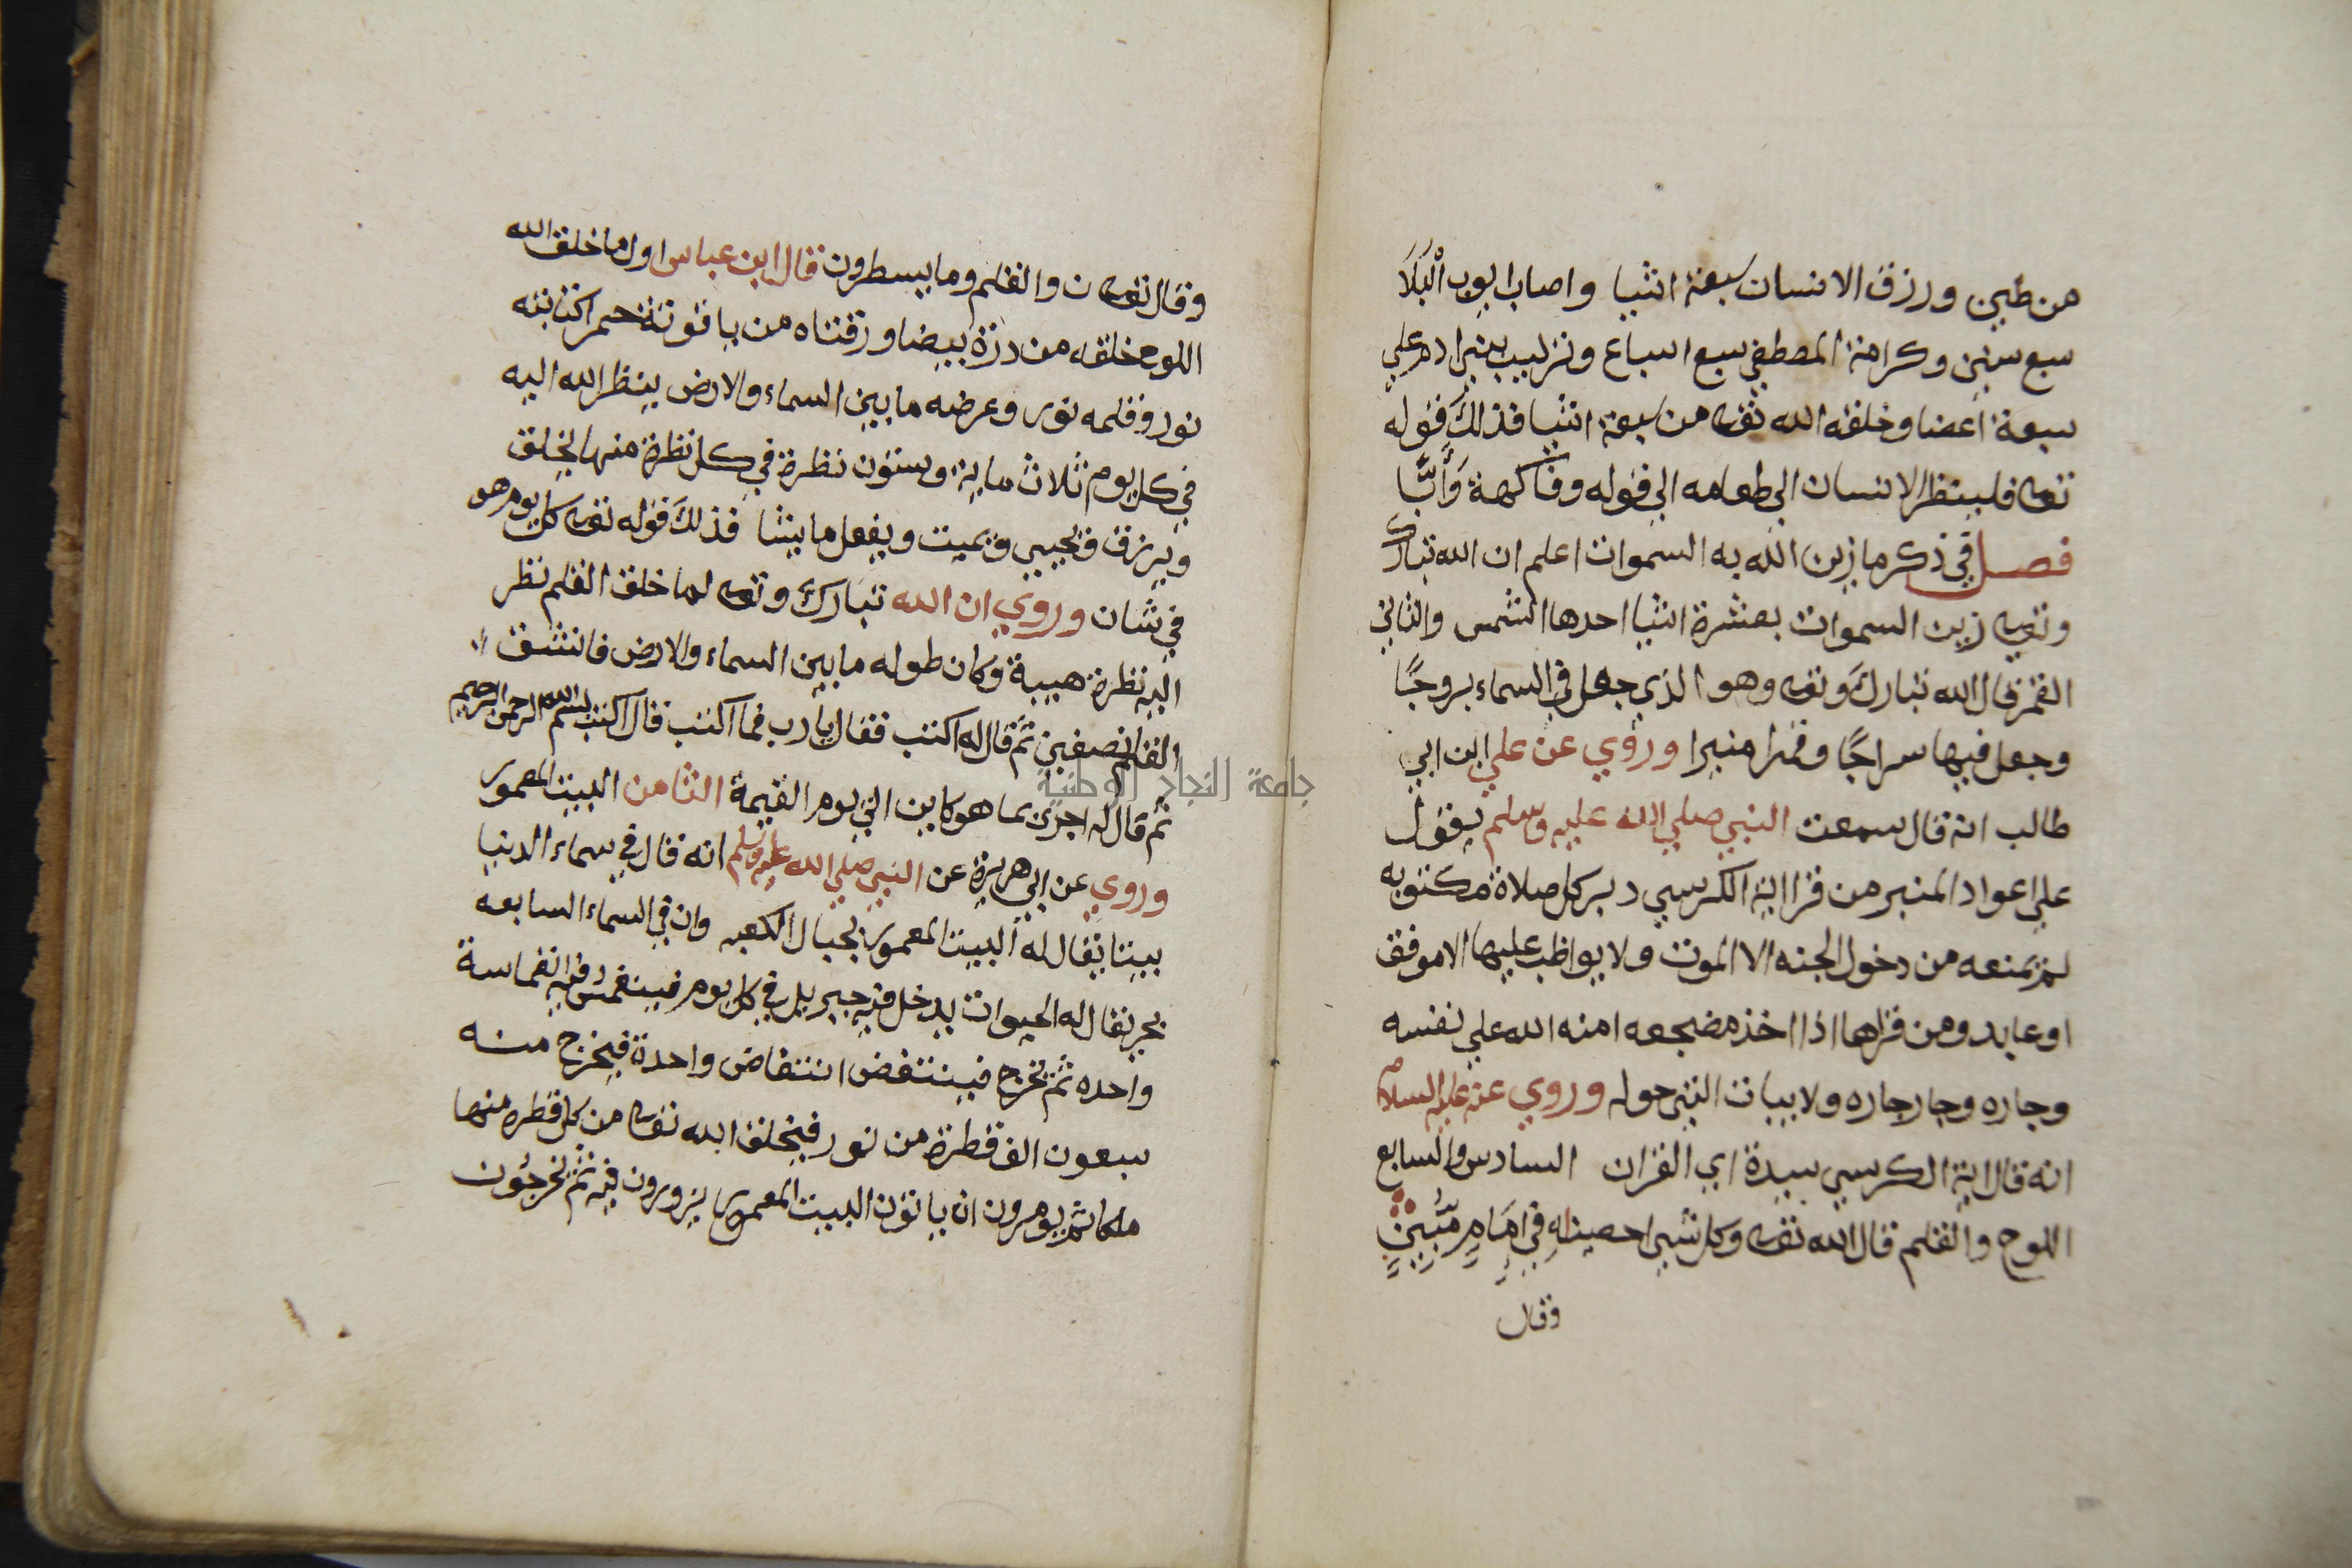 من طين ورزق الانسان سبعة اشيا واصاب ايوب الْبَلَا
سبع سنين وكرامة المصطفي سبع اسباع وتركيب بني ادم علي
سبعة اعضا وخلقه الله تعالى من سبعة اشيا فذلك قوله
تعالى فلينظر الانسان الي طعامه الي قوله وفاكهة وَأَبًّا
فصل في ذكر ما زين الله به السموات اعلم ان الله تبارك
وتعالى زين السموات بعشرة اشيا احدها الشمس والثاني
القمر قال الله تبارك وتعالى وهو الذي جعل في السماء بروجًا
وجعل فيها سراجًا وقمرا منيرا وروي عن علي ابن ابي
طالب انه قال سمعت النبي صلي الله عليه وسلم يقول
علي اعواد المنبر من قرا اية الكرسي دبر كل صلاة مكتوبه
لم يمنعه من دخول الجنه الا الموت ولا يواظب عليها الا موفق
او عابد ومن قراها اذا اخذ مضجعه امنه الله علي نفسه
وجاره وجار جاره ولابيات التي حوله وروي عنه عليه السلام
انه قال اية الكرسي سيدة اي القران السادس والسابع
اللوح والقلم قال الله تعالى وكل شيي احصيناه في امَامٍ مُّبِينٍ
وقال
وقال تعالى ن والقلم وما يسطرون قال ابن عباس اول ما خلق الله
اللوح خلقه من درة بيضا ودفتاه من ياقوتة حمرا كتابته
نور وقلمه نور وعرضه ما بين السماء والارض ينظر الله اليه
في كل يوم ثلاث ماية وستون نظرة في كل نظرة منها يخلق
ويرزق ويحيي ويميت ويفعل ما يشا فذلك قوله تعالى كل يوم هو
في شان وروي ان الله تبارك وتعالى لما خلق القلم نظر
اليه نظرة هيبة وكان طوله ما بين السماء والارض فانشق
القلم نصفين ثم قال له اكتب فقال يا رب فما اكتب قال اكتب بسم الله الرحمن الرحيم
ثم قال له اجري بما هو كاين الي يوم القيمة الثامن البيت المعمور
وروي عن ابي هريرة عن النبي صلي الله عليه وسلم انه قال في سماء الدنيا
بيتا يقال له البيت المعمور بحيال الكعبه وان في السماء السابعه
بحر يقال له الحيوات يدخل فيه جبريل في كل يوم فينغمس فيه انغماسة
واحده ثم يخرج فينتفض انتفاض واحدة فيخرج منه
سبعون الف قطرة من نور فيخلق الله تعالى من كل قطره منها
ملكا ثم يومرون ان ياتون البيت المعمور يزورون فيه ثم يخرجون
جامعة النجاح الوطنية